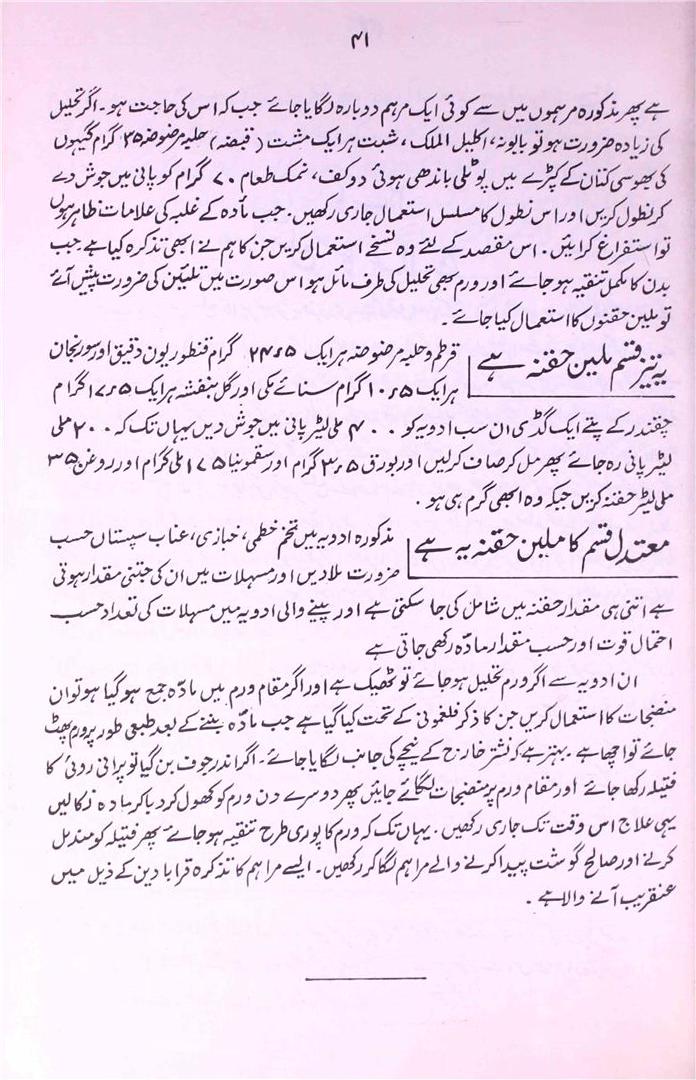 ۴۱
ہے پھر مذکورہ مرہموں میں سے کوئی ایک مرہم دوبارہ لگایا جائے جب کہ اس کی حاجت ہو۔ اگر تحلیل
کی زیادہ ضرورت ہو تو بابونہ، اکلیل الملک، شبت ہر ایک مشت (قبضہ) حلبہ مرضوضہ ۳۵ گرام گیہوں
کی بھوسی کتان کے کپڑے میں پوٹلی باندھی ہوئی دو کف، نمک طعام ۷۰ گرام کو پانی میں جوش دے
کر نطول کریں اور اس نطول کا مسلسل استعمال جاری رکھیں۔ جب مادہ کے غلبہ کی علامات ظاہر ہوں
تو استفراغ کرائیں۔ اس مقصد کے لئے وہ نسخے استعمال کریں جن کا ہم نے ابھی تذکرہ کیا ہے جب
بدن کا مکمل تنقیہ ہو جائے اور ورم بھی تحلیل کی طرف مائل ہو اس صورت میں تلیین کی ضرورت پیش آئے
تو ملین حقنوں کا استعمال کیا جائے۔
یہ تیز قسم ملین حقنہ ہے قرطم و حلبہ مرضوضہ ہر ایک ۲۴٫۵ گرام قنطوریون دقیق اور سورنجان
ہر ایک ۱۰٫۵ گرام سنائے مکی اور گل بنفشہ ہر ایک ۱۷٫۵ گرام
چقندر کے پتے ایک گڈی ان سب ادویہ کو ۴۰۰ ملی لیٹر پانی میں جوش دیں یہاں تک کہ ۲۰۰ ملی
لیٹر پانی رہ جائے پھر مل کر صاف کر لیں اور بورق ۳٫۵ گرام اور سقمونیا ۱۷۵ ملی گرام اور روغن ۳۵
ملی لیٹر حقنہ کریں جبکہ وہ ابھی گرم ہی ہو۔
معتدل قسم کا ملین حقنہ یہ ہے مذکورہ ادویہ میں تخم خطمی، خبازی، عناب سپستاں حسب
ضرورت ملا دیں اور مسہلات میں ان کی جتنی مقدار ہوتی
ہے اتنی ہی مقدار حقنہ میں شامل کی جا سکتی ہے اور پینے والی ادویہ میں مسہلات کی تعداد حسب
احتمال قوت اور حسب مقدار مادّہ رکھی جاتی ہے
ان ادویہ سے اگر ورم تحلیل ہو جائے تو ٹھیک ہے اور اگر مقام ورم میں مادّہ جمع ہو گیا ہو تو ان
منضجات کا استعمال کریں جن کا ذکر فلغمونی کے تحت کیا گیا ہے جب مادّہ بننے کے بعد طبعی طور پر ورم پھٹ
جائے تو اچھا ہے۔ بہتر ہے کہ نشتر خارج کے نیچے کی جانب لگایا جائے۔ اگر اندر جوف بن گیا تو پرانی روئی کا
فتیلہ رکھا جائے اور مقام ورم پر منضجات لگائے جائیں پھر دوسرے دن ورم کو کھول کر دبا کر مادہ نکالیں
یہی علاج اس وقت تک جاری رکھیں۔ یہاں تک کہ ورم کا پوری طرح تنقیہ ہو جائے پھر فتیلہ کو مندمل
کرنے اور صالح گوشت پیدا کرنے والے مراہم لگا کر رکھیں۔ ایسے مراہم کا تذکرہ قرابادین کے ذیل میں
عنقریب آنے والا ہے۔